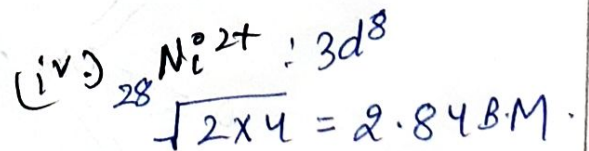 (iv) ₂₈Ni²⁺ : 3d⁸
√2×4 = 2.84 B.M.